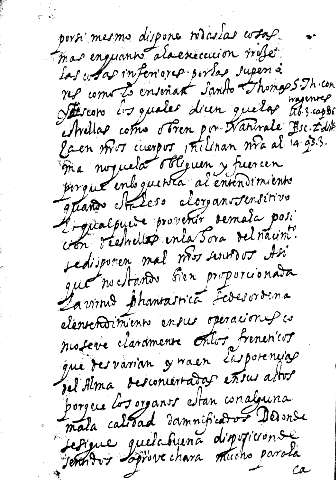 por si mesmo dispone todas las cosas
mas en quanto a la execucion rije
las cosas inferiores por las superio
res como lo enseñan Santo Thomas
y Escoto los quales dicen que las
estrellas como obren por naturale
za en nros cuerpos inclinan nra al
ma no que la obliguen y fuercen
porque en lo que toca al entendimiento
quando esta leso el organo sensitivo
lo qual puede provenir de mala posi
cion de estrellas en la hora del nacimto
se disponen mal nros sentidos Asi
que no estando bien proporcionada
la virtud phantastica se desordena
el entendimiento en sus operaciones co
mo se ve claramente en los freneticos
que desvarian y traen las potencias
del Alma desconcertadas en sus actos
porque los organos estan con alguna
mala calidad damnificados De donde
se sigue que la buena disposicion de
sentidos aprovechara mucho para la
ca
S. Th. con
tra gentes
lib. 3. cap 86
Esc. 2. dist
14 q3. 3.